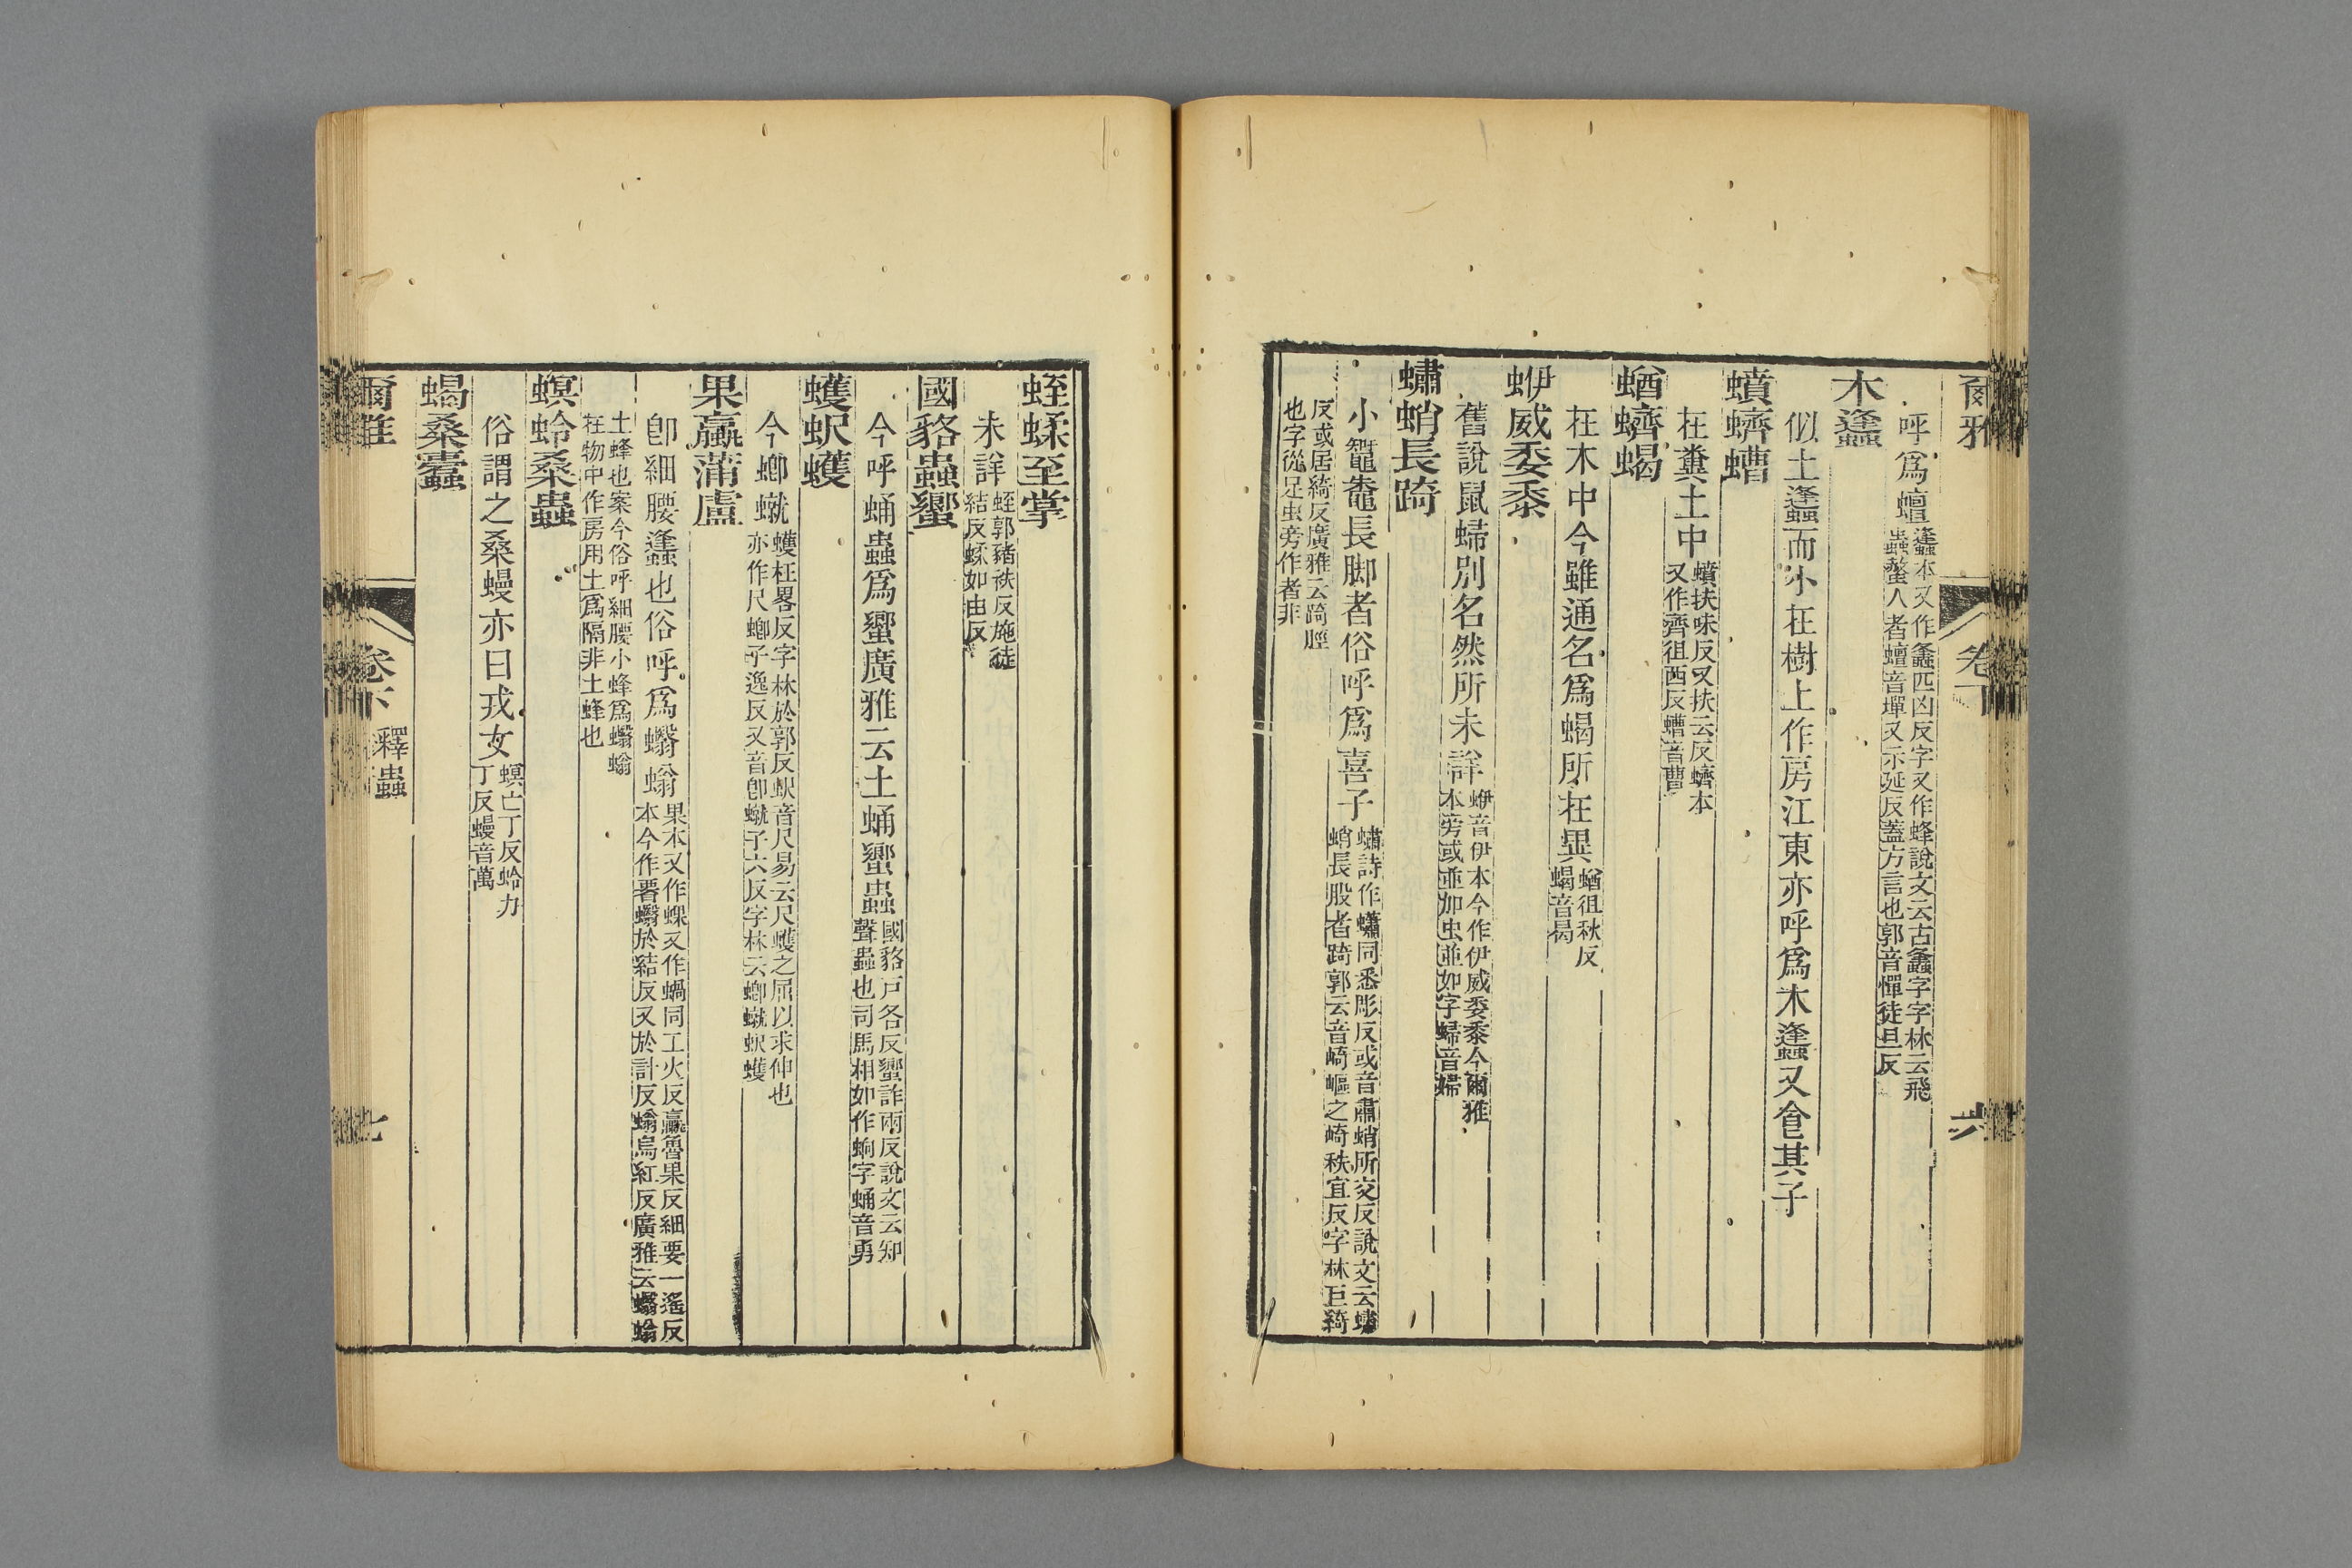 爾雅 卷下 六
呼爲蟺
蠭本又作䗬匹凶反字又作蜂說文云古䗬字字林云飛
蟲螫人者蟺音墠又示延反蓋方言也郭音憚徒旦反
木蠭
似土蠭而小在樹上作房江東亦呼爲木蠭又食其子
蟦蠐螬
在糞土中
蟦扶味反又扶云反蠐本
又作齊徂西反螬音曹
蝤蠐蝎
在木中今雖通名爲蝎所在異
蝤徂秋反
蝎音曷
蛜威委黍
舊說鼠蝜別名然所未詳
蛜音伊本今作伊威委黍今爾雅
本旁或並加虫並如字
蠨蛸長踦
小鼅鼄長脚者俗呼爲喜子
蠨詩作蠨同悉彫反或音肅蛸所交反說文云蠨
蛸長股者踦郭云音崎嶇之崎秩宜反字林巨綺
反或居綺反廣雅云踦脛
也字從足虫旁作者非
蛭蝚至掌
未詳
蛭郭豬秩反施徒
結反蝚如由反
國貉蟲蠁
今呼蛹蟲爲蠁廣雅云土蛹蠁蟲
國貉戸各反蠁許兩反說文云知
聲蟲也司馬相如作蚼字蛹音勇
蠖蚇蠖
今蝍䗘
蠖枉畧反字林於郭反蚇音尺易云尺蠖之屈以求伸也
亦作尺蝍子逸反又音卽䗘子六反字林云蝍䗘蚇蠖
果蠃蒲盧
卽細腰蠭也俗呼爲蠮螉
果本又作蜾又作蝸同工火反蠃魯果反細要一遙反
本今作署蠮於結反又於計反螉烏紅反廣雅云蠮螉
土蜂也案今俗呼細腰小蜂爲蠮螉
在物中作房用土爲隔非土蜂也
螟蛉桑蟲
俗謂之桑蟃亦曰戎女
螟亡丁反蛉力
丁反蟃音萬
蝎桑蠹
爾雅 卷下 釋蟲 七